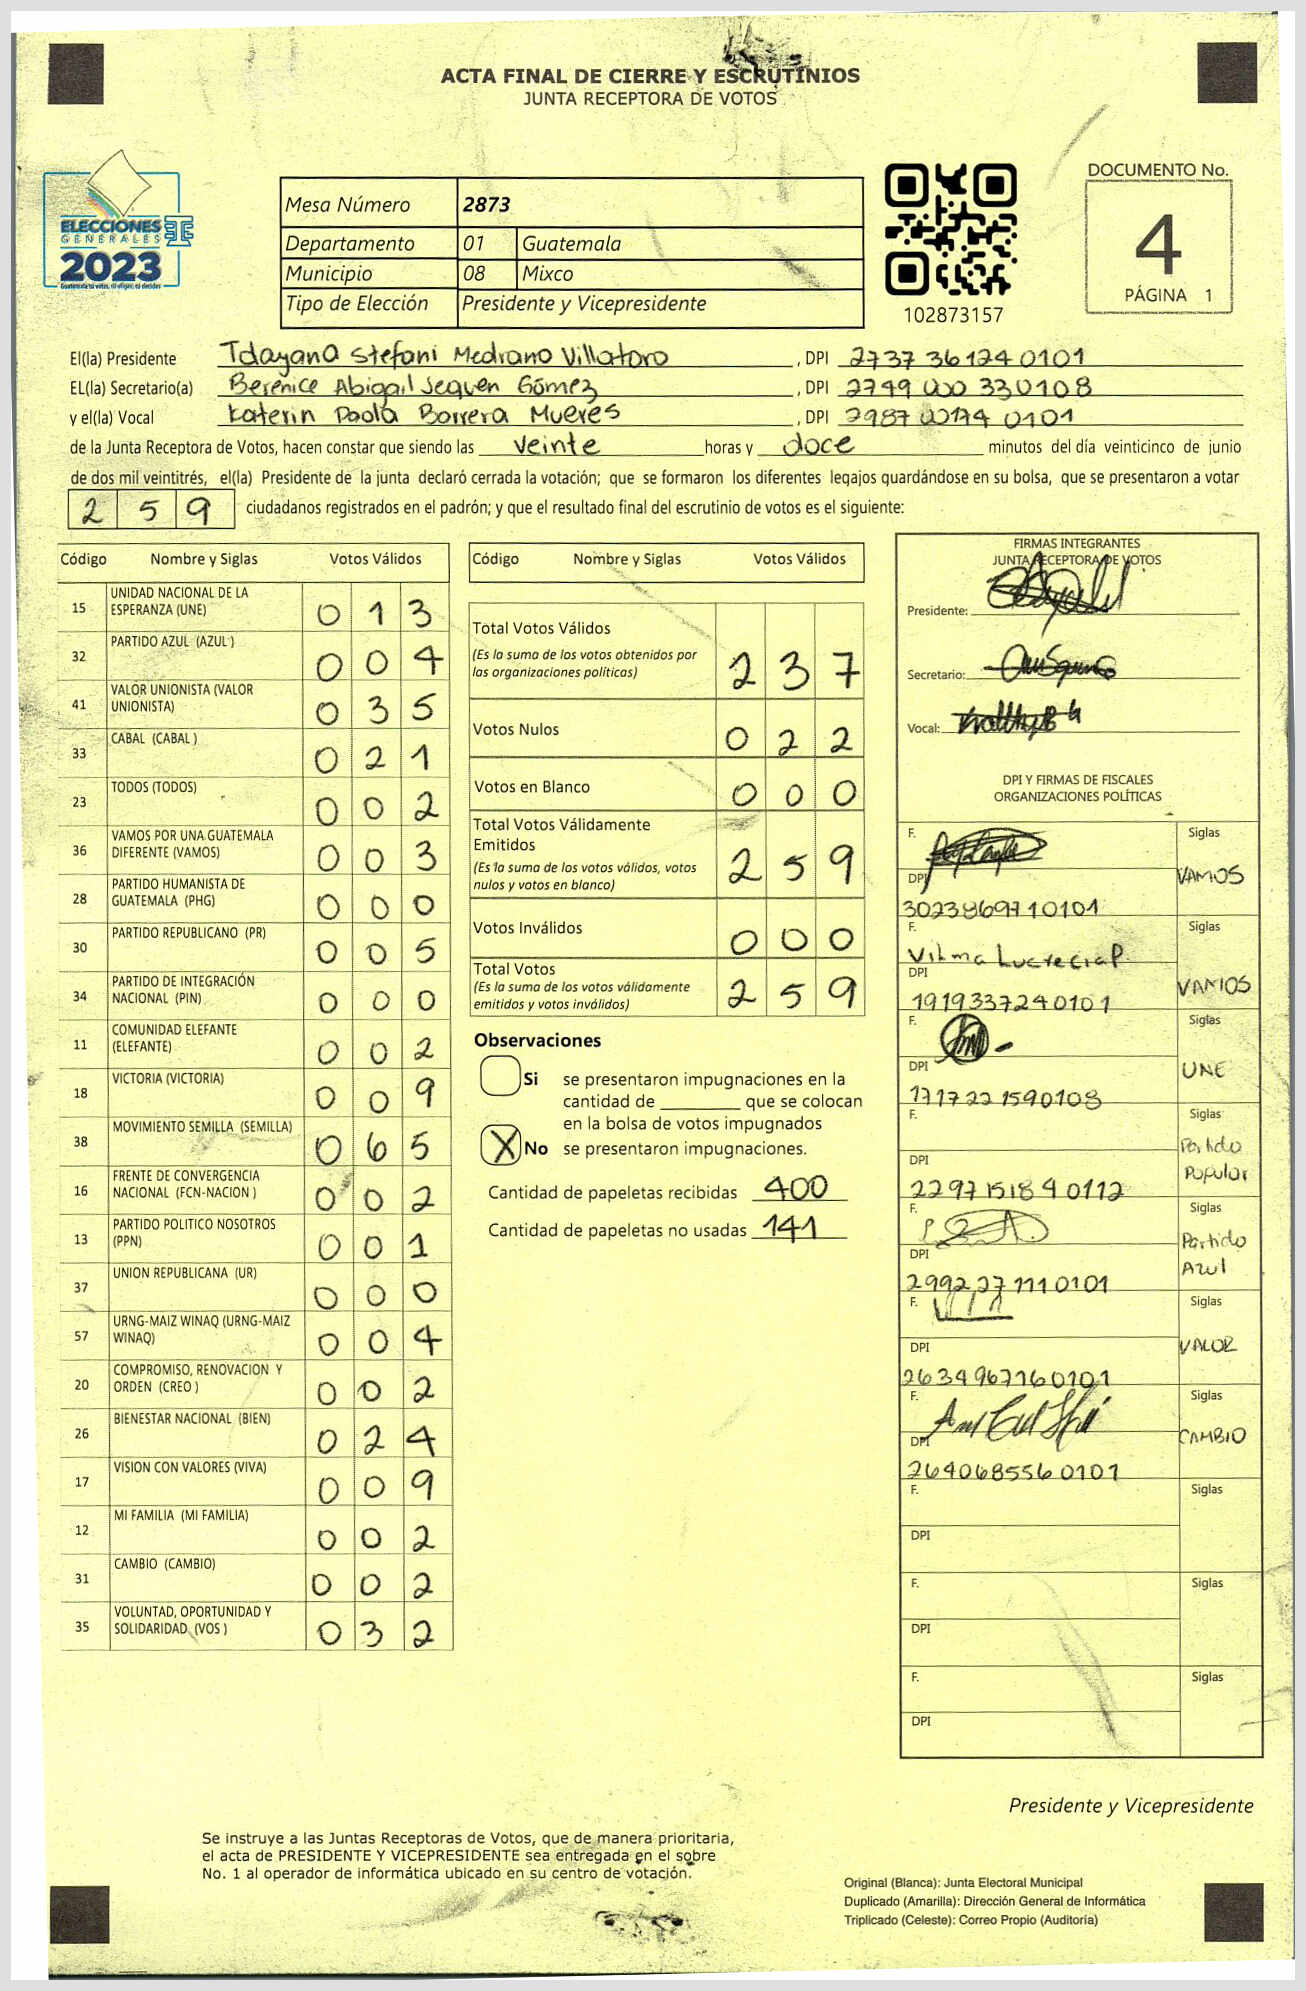 ACTA FINAL DE CIERRE Y ESCRUTINIOS
JUNTA RECEPTORA DE VOTOS
ELECCIONES
GENERALES
2023
Mesa Número 2873
Departamento 01 Guatemala
Municipio 08 Mixco
Tipo de Elección Presidente y Vicepresidente
102873157
DOCUMENTO No.
4
PÁGINA 1
El(la) Presidente Tdayana Stefani Medrano Villatoro , DPI 2737 36124 0101
EL(la) Secretario(a) Berenice Abigail Jequen Gómez , DPI 2749 000 330108
y el(la) Vocal Katerin Paola Barrera Mueres , DPI 2987 00174 0101
de la Junta Receptora de Votos, hacen constar que siendo las veinte horas y doce minutos del día veinticinco de junio
de dos mil veintitrés, el(la) Presidente de la junta declaró cerrada la votación; que se formaron los diferentes legajos guardándose en su bolsa, que se presentaron a votar
2 5 9 ciudadanos registrados en el padrón; y que el resultado final del escrutinio de votos es el siguiente:
Código Nombre y Siglas Votos Válidos
15 UNIDAD NACIONAL DE LA ESPERANZA (UNE) 0 1 3
32 PARTIDO AZUL (AZUL ) 0 0 4
41 VALOR UNIONISTA (VALOR UNIONISTA) 0 3 5
33 CABAL (CABAL ) 0 2 1
23 TODOS (TODOS) 0 0 2
36 VAMOS POR UNA GUATEMALA DIFERENTE (VAMOS) 0 0 3
28 PARTIDO HUMANISTA DE GUATEMALA (PHG) 0 0 0
30 PARTIDO REPUBLICANO (PR) 0 0 5
34 PARTIDO DE INTEGRACIÓN NACIONAL (PIN) 0 0 0
11 COMUNIDAD ELEFANTE (ELEFANTE) 0 0 2
18 VICTORIA (VICTORIA) 0 0 9
38 MOVIMIENTO SEMILLA (SEMILLA) 0 6 5
16 FRENTE DE CONVERGENCIA NACIONAL (FCN-NACION ) 0 0 2
13 PARTIDO POLITICO NOSOTROS (PPN) 0 0 1
37 UNION REPUBLICANA (UR) 0 0 0
57 URNG-MAIZ WINAQ (URNG-MAIZ WINAQ) 0 0 4
20 COMPROMISO, RENOVACION Y ORDEN (CREO ) 0 0 2
26 BIENESTAR NACIONAL (BIEN) 0 2 4
17 VISION CON VALORES (VIVA) 0 0 9
12 MI FAMILIA (MI FAMILIA) 0 0 2
31 CAMBIO (CAMBIO) 0 0 2
35 VOLUNTAD, OPORTUNIDAD Y SOLIDARIDAD (VOS ) 0 3 2
Código Nombre y Siglas Votos Válidos
Total Votos Válidos
(Es la suma de los votos obtenidos por
las organizaciones políticas) 2 3 7
Votos Nulos 0 2 2
Votos en Blanco 0 0 0
Total Votos Válidamente
Emitidos
(Es la suma de los votos válidos, votos
nulos y votos en blanco) 2 5 9
Votos Inválidos 0 0 0
Total Votos
(Es la suma de los votos válidamente
emitidos y votos inválidos) 2 5 9
Observaciones
Si se presentaron impugnaciones en la
cantidad de ________ que se colocan
en la bolsa de votos impugnados
X No se presentaron impugnaciones.
Cantidad de papeletas recibidas 400
Cantidad de papeletas no usadas 141
FIRMAS INTEGRANTES
JUNTA RECEPTORA DE VOTOS
Presidente:
Secretario:
Vocal:
DPI Y FIRMAS DE FISCALES
ORGANIZACIONES POLÍTICAS
F. Siglas
VAMOS
DPI
3023869710101
F. Siglas
Vilma Lucrecia P.
DPI VAMOS
1919337240101
F. Siglas
DPI UNE
1717221590108
F. Siglas
Partido
DPI Popular
2297151840112
F. Siglas
Partido
DPI Azul
2992271110101
F. Siglas
DPI VALOR
2634967160101
F. Siglas
DPI CAMBIO
2640685560101
F. Siglas
DPI
F. Siglas
DPI
F. Siglas
DPI
Presidente y Vicepresidente
Se instruye a las Juntas Receptoras de Votos, que de manera prioritaria,
el acta de PRESIDENTE Y VICEPRESIDENTE sea entregada en el sobre
No. 1 al operador de informática ubicado en su centro de votación.
Original (Blanca): Junta Electoral Municipal
Duplicado (Amarilla): Dirección General de Informática
Triplicado (Celeste): Correo Propio (Auditoría)